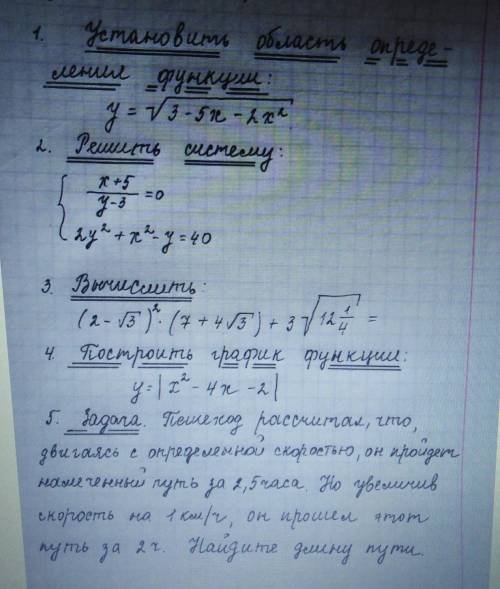 1. Установить область опреде-
ления функции:
y = √(3 - 5x - 2x²)
2. Решить систему:
{ (x+5)/(y-3) = 0
2y² + x² - y = 40
3. Вычислить:
(2 - √3)² · (7 + 4√3) + 3√(12 1/4) =
4. Построить график функции:
y = |x² - 4x - 2|
5. Задача. Пешеход рассчитал, что,
двигаясь с определенной скоростью, он пройдет
намеченный путь за 2,5 часа. Но увеличив
скорость на 1 км/ч, он прошел этот
путь за 2 ч. Найдите длину пути.